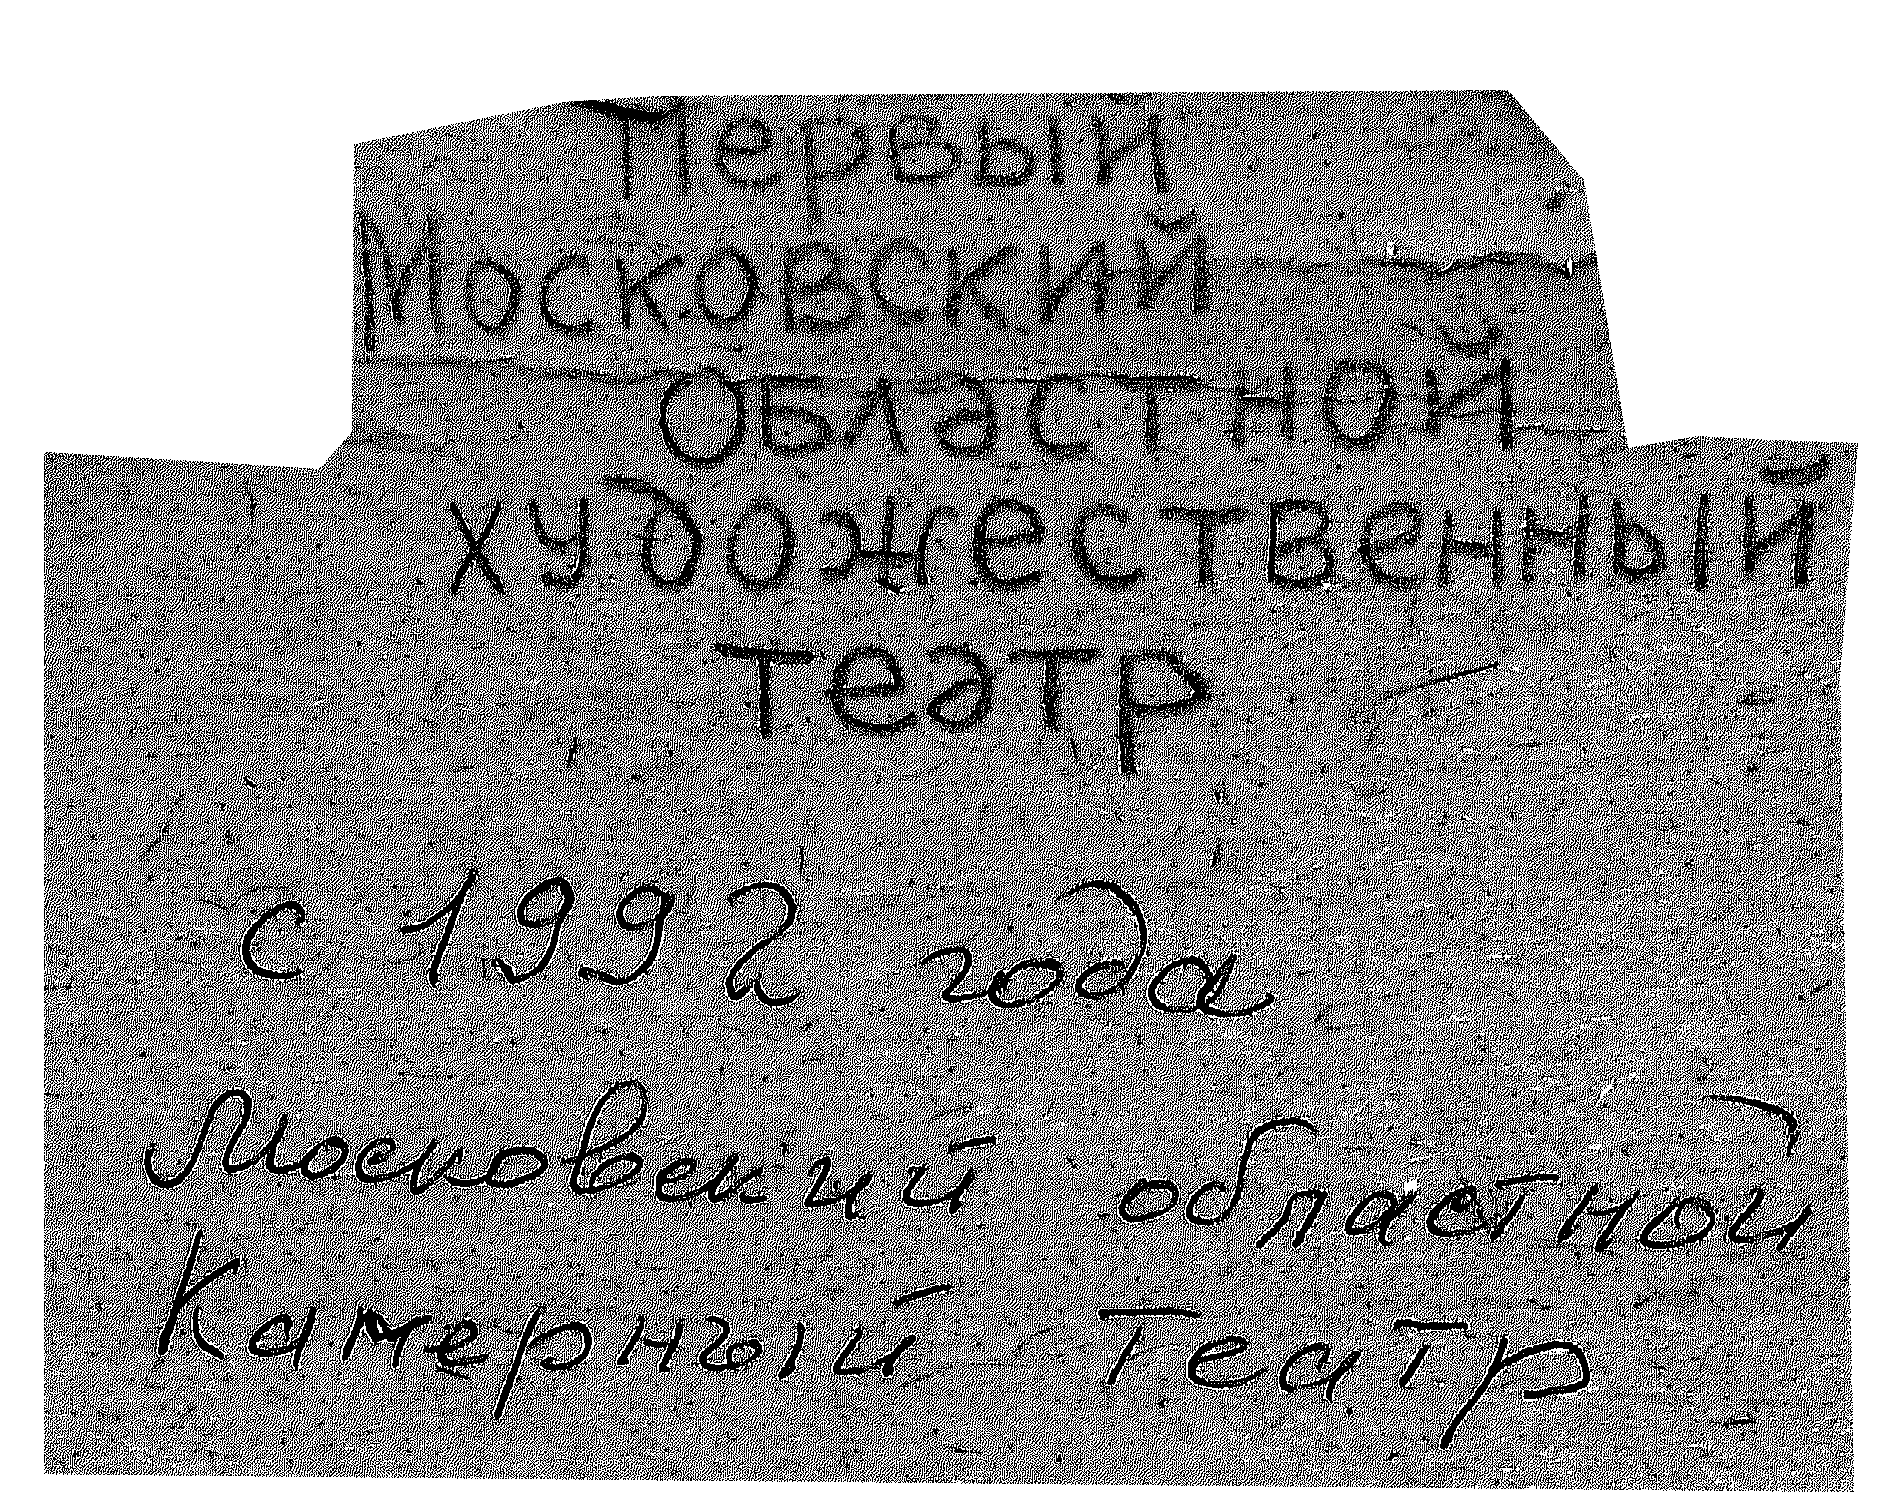 Первый
Московский
Областной
художественный
театр
с 1992 года
Московский областной
Камерный театр